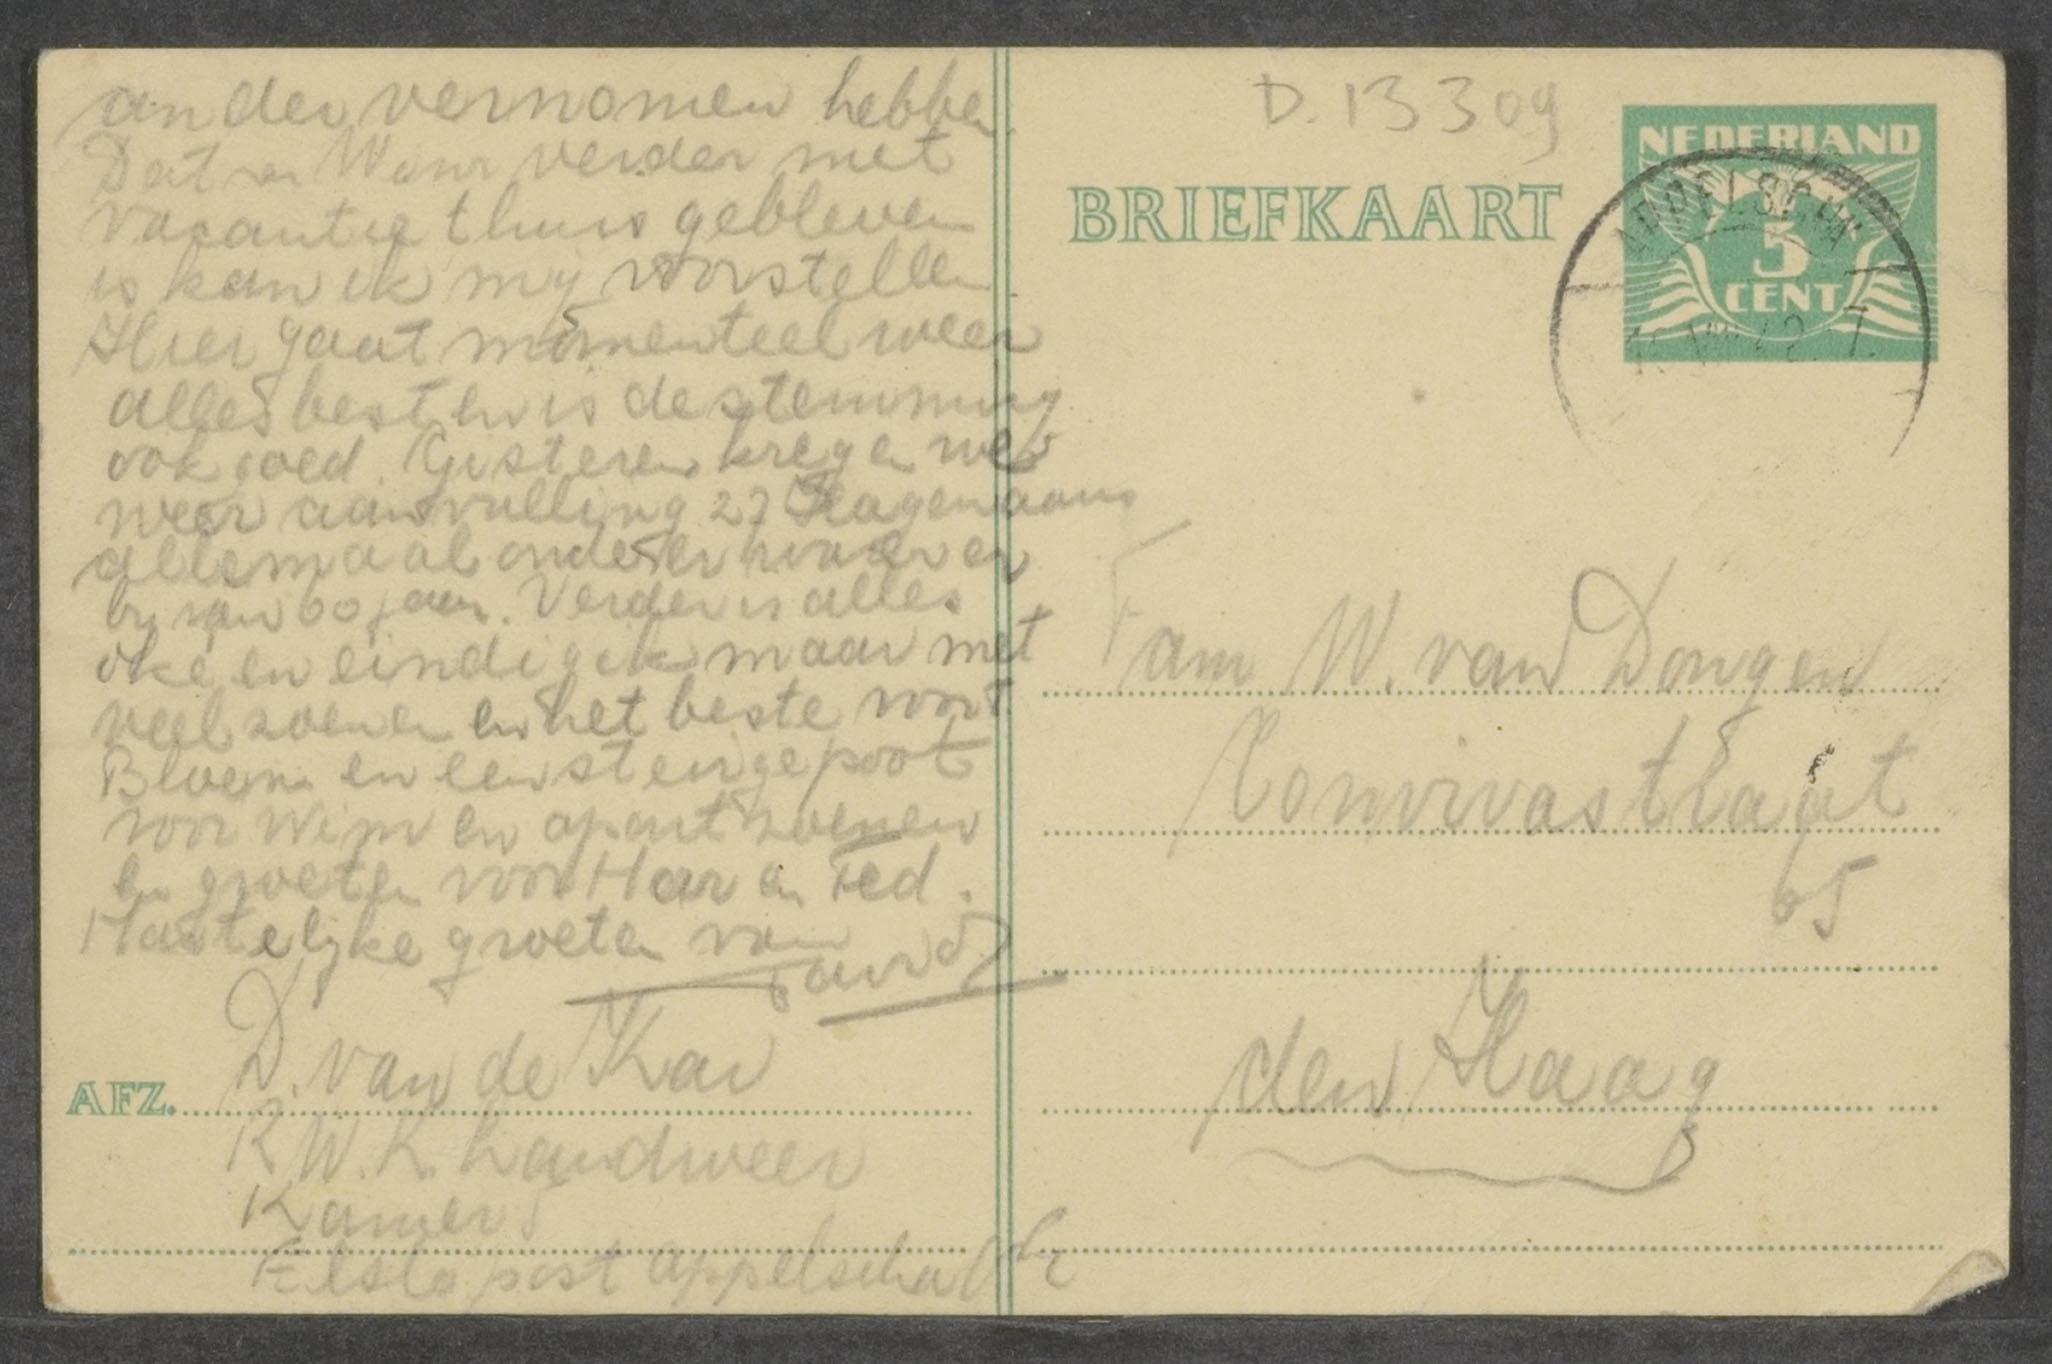 ander vernomen hebben.
Dat Wim verder met
vacantie thuis gebleven
is kan ik mij voorstellen
Hier gaat momenteel weer
alles best en is de stemming
ook goed. Gisteren kregen we
weer aanvulling 27 Hagenaars
allemaal ouderen waaronder
van 60 jaar. Verder is alles
oke en eindig ik maar met
veel zoenen en het beste voor
Bloem en een stevige poot
voor Wim en apart zoenen
en groeten voor Har en Fed.
Hartelijke groeten van
David
AFZ. D. van de Kar
R.W.K. Landweer
Kamer 5
Elslo post Appelscha (Fr
D. 13309
BRIEFKAART
NEDERLAND
5
CENT
APPELSCHA
42.7.
Fam W. van Dongen
Convivastraat
65
den Haag